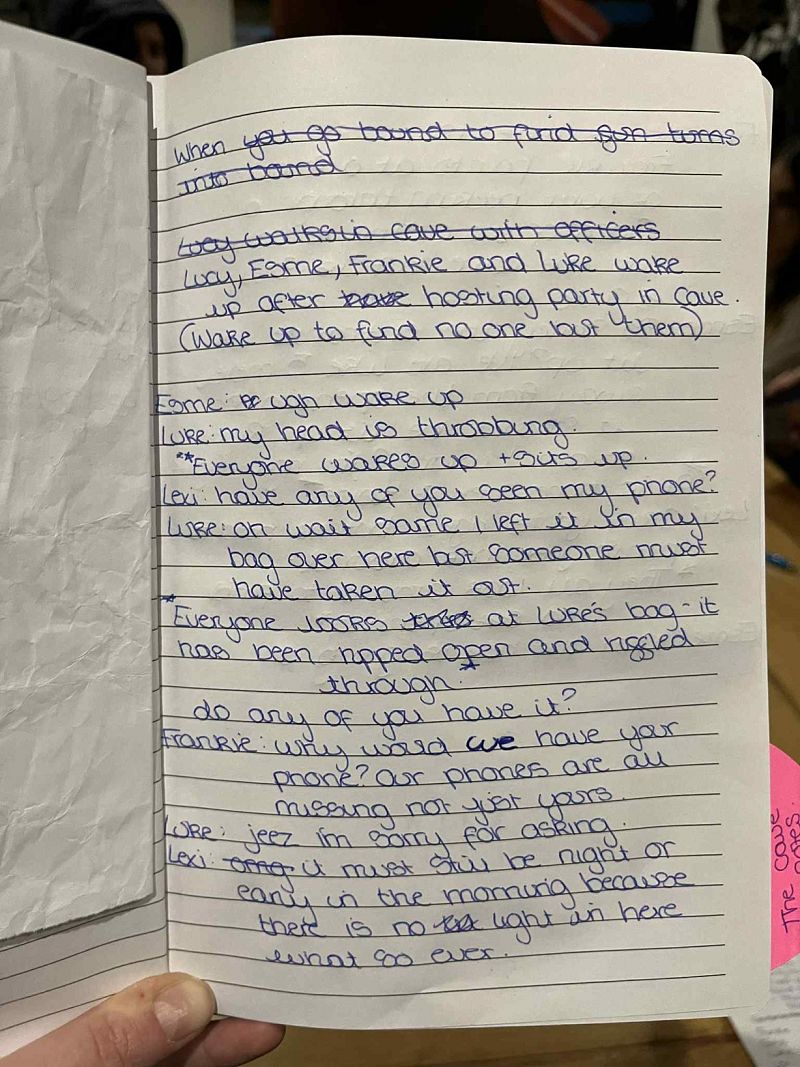 When you go bound to find gun turns
into bound
Lucy walks in cave with officers
Lucy, Esme, Frankie and Luke wake
up after hosting party in cave.
(wake up to find no one but them)
Esme: ugh wake up
Luke: my head is throbbing.
**Everyone wakes up + sits up.
Lexi: have any of you seen my phone?
Luke: oh wait same I left it in my
bag over here but someone must
have taken it out.
*Everyone looks at Luke's bag - it
has been ripped open and riggled
through.*
do any of you have it?
Frankie: why would we have your
phone? Our phones are all
missing not just yours.
Luke: jeez im sorry for asking.
Lexi: omg it must still be night or
early in the morning because
there is no light in here
what so ever.
The cave